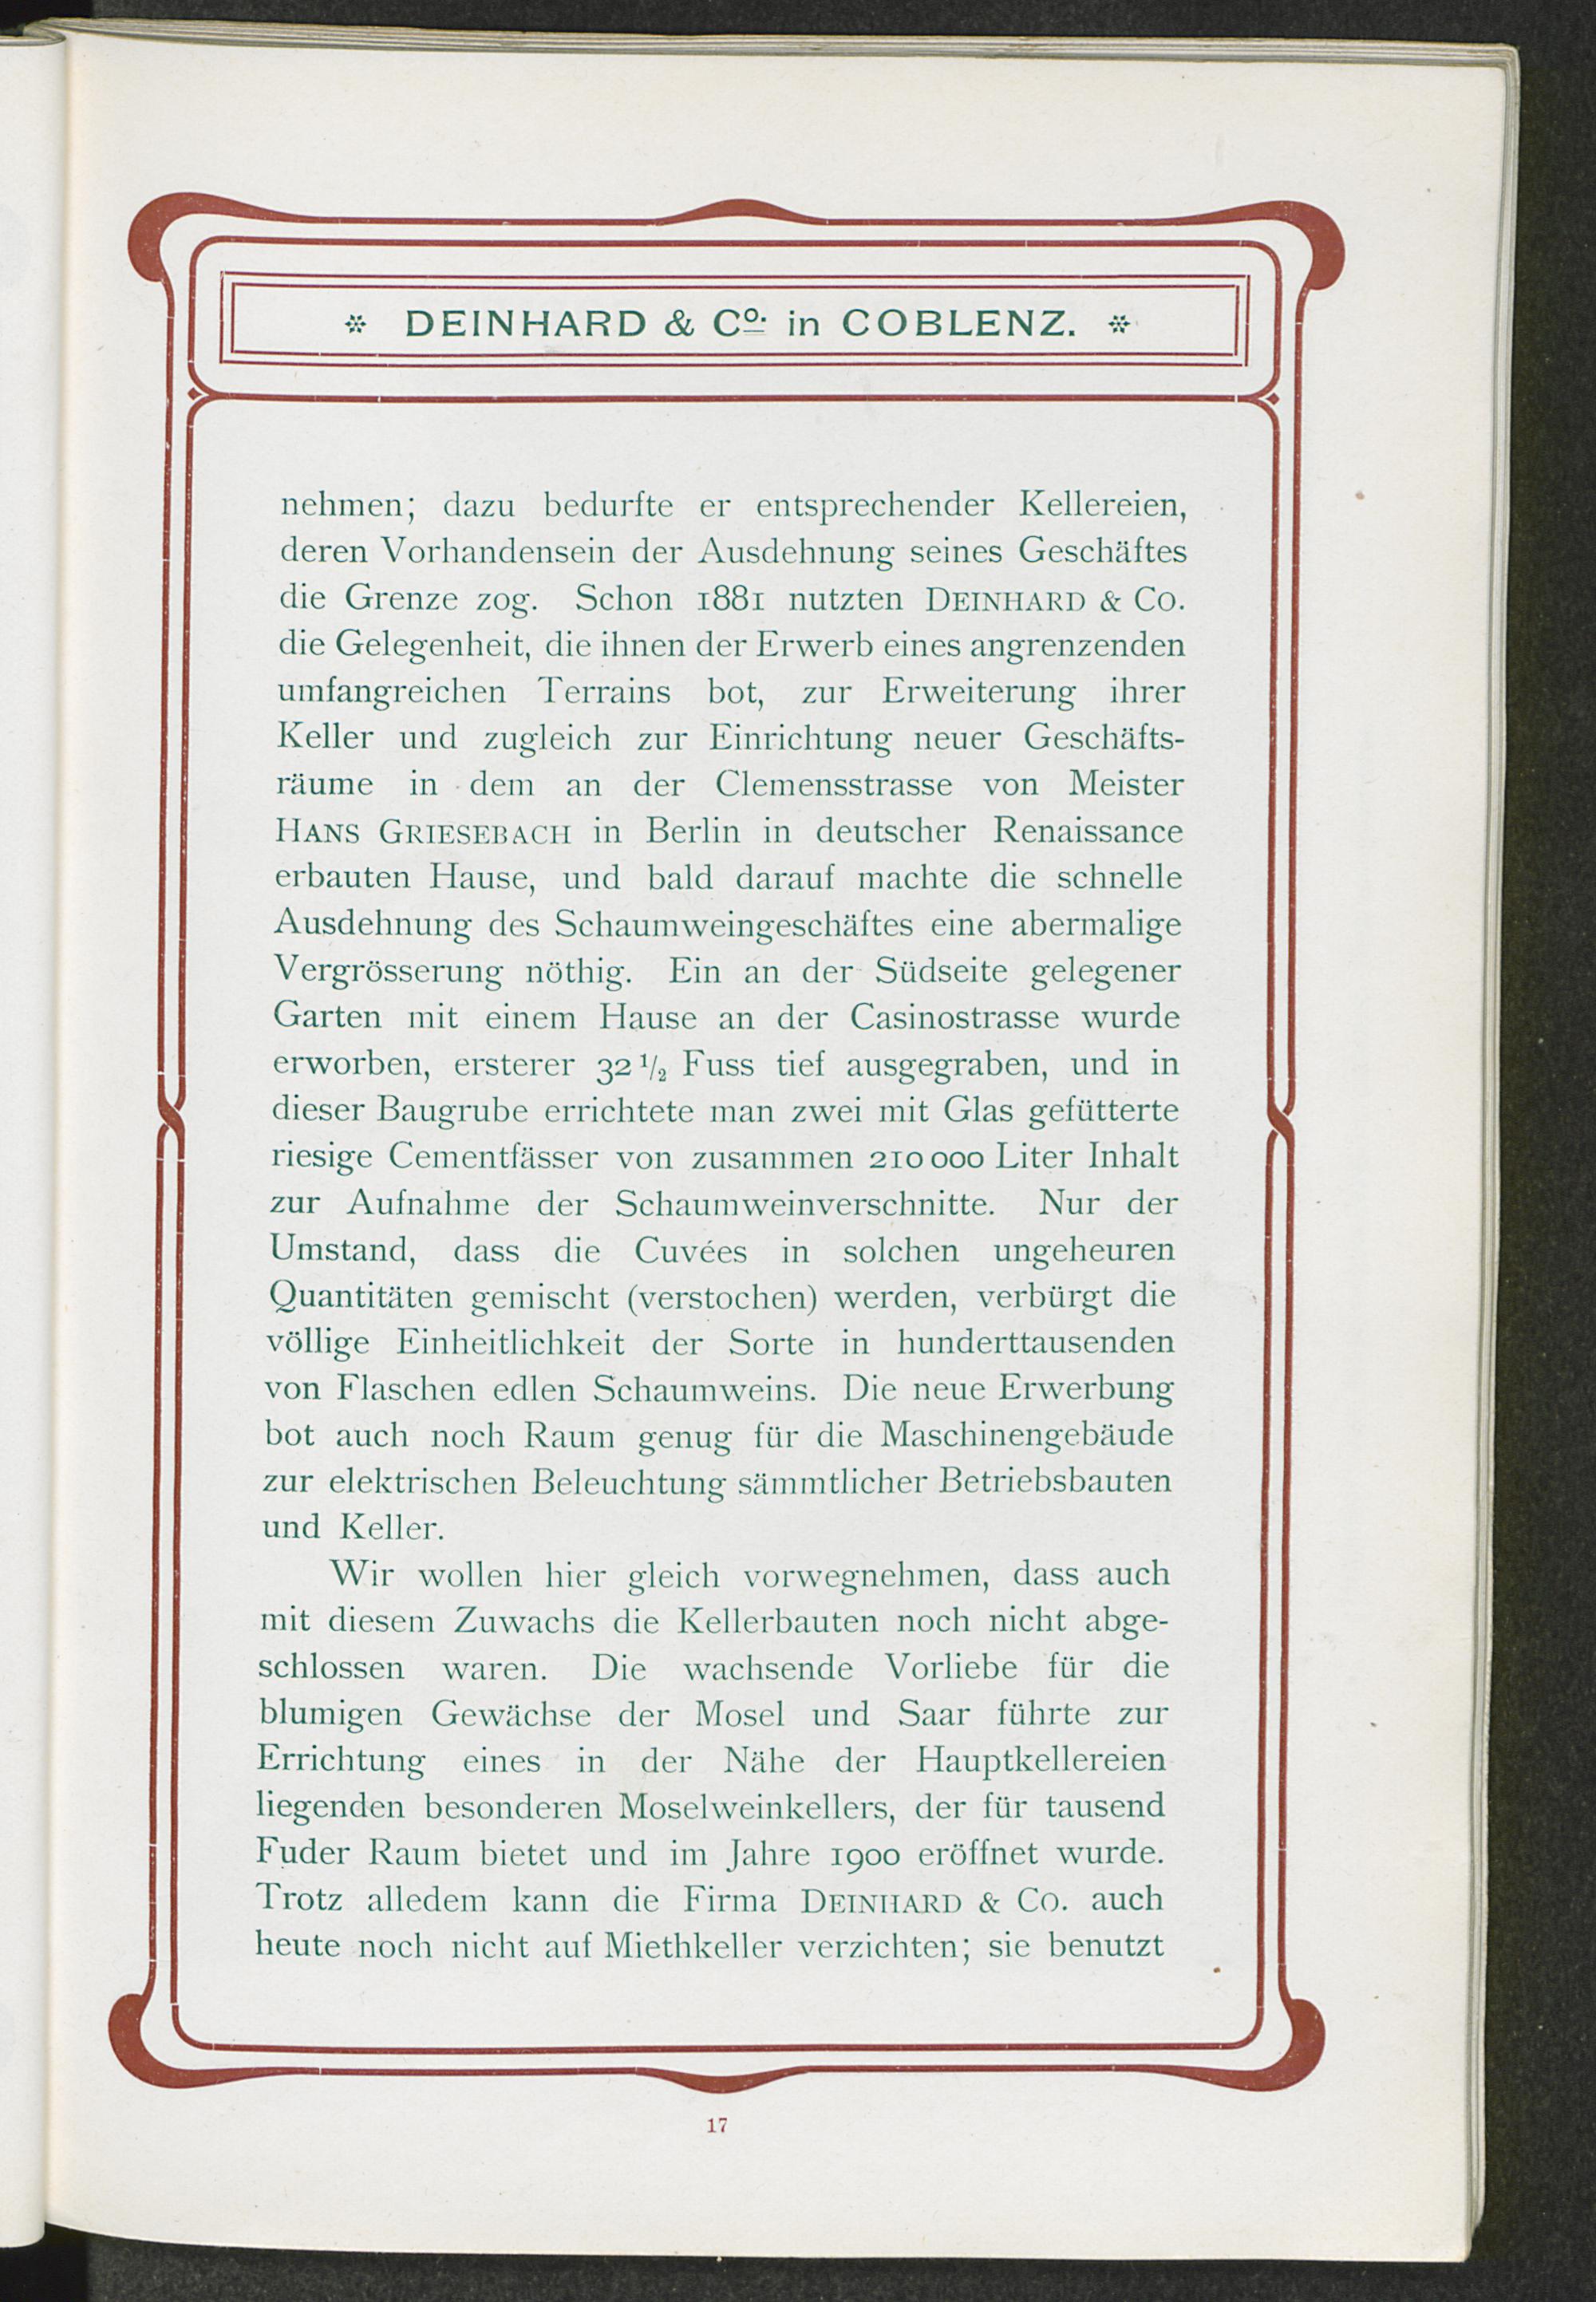 * DEINHARD & Co. in COBLENZ. *
nehmen; dazu bedurfte er entsprechender Kellereien,
deren Vorhandensein der Ausdehnung seines Geschäftes
die Grenze zog. Schon 1881 nutzten DEINHARD & CO.
die Gelegenheit, die ihnen der Erwerb eines angrenzenden
umfangreichen Terrains bot, zur Erweiterung ihrer
Keller und zugleich zur Einrichtung neuer Geschäfts-
räume in dem an der Clemensstrasse von Meister
HANS GRIESEBACH in Berlin in deutscher Renaissance
erbauten Hause, und bald darauf machte die schnelle
Ausdehnung des Schaumweingeschäftes eine abermalige
Vergrösserung nöthig. Ein an der Südseite gelegener
Garten mit einem Hause an der Casinostrasse wurde
erworben, ersterer 32 1/2 Fuss tief ausgegraben, und in
dieser Baugrube errichtete man zwei mit Glas gefütterte
riesige Cementfässer von zusammen 210 000 Liter Inhalt
zur Aufnahme der Schaumweinverschnitte. Nur der
Umstand, dass die Cuvées in solchen ungeheuren
Quantitäten gemischt (verstochen) werden, verbürgt die
völlige Einheitlichkeit der Sorte in hunderttausenden
von Flaschen edlen Schaumweins. Die neue Erwerbung
bot auch noch Raum genug für die Maschinengebäude
zur elektrischen Beleuchtung sämmtlicher Betriebsbauten
und Keller.
Wir wollen hier gleich vorwegnehmen, dass auch
mit diesem Zuwachs die Kellerbauten noch nicht abge-
schlossen waren. Die wachsende Vorliebe für die
blumigen Gewächse der Mosel und Saar führte zur
Errichtung eines in der Nähe der Hauptkellereien
liegenden besonderen Moselweinkellers, der für tausend
Fuder Raum bietet und im Jahre 1900 eröffnet wurde.
Trotz alledem kann die Firma DEINHARD & CO. auch
heute noch nicht auf Miethkeller verzichten; sie benutzt
17